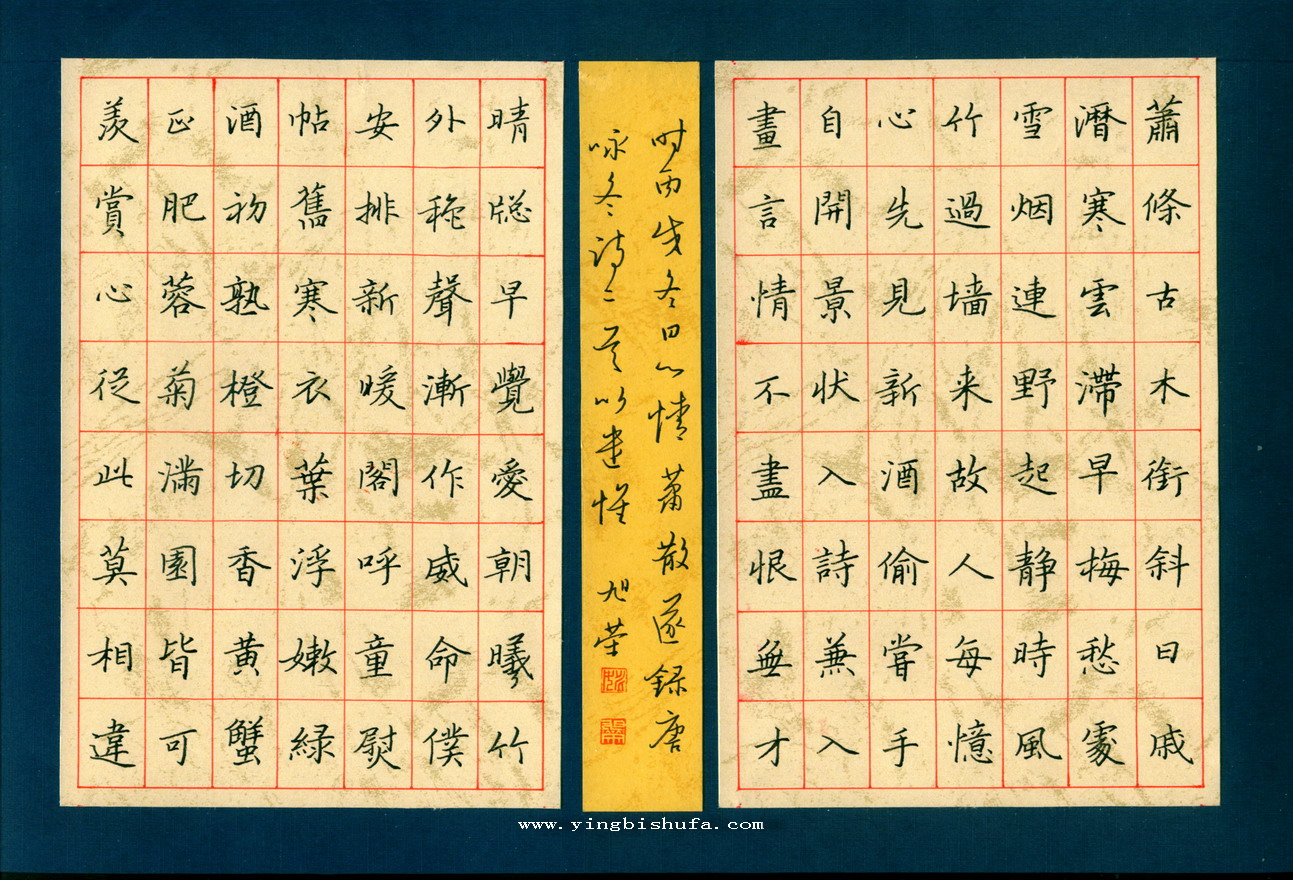 蕭條古木銜斜日戚
濳寒雲滯早梅愁處
雪烟連野起静時風
竹過墙来故人每憶
心先見新酒偷嘗手
自開景状入詩兼入
畫言情不盡恨無才
时丙戌冬日心情蕭散遂録唐
咏冬诗二首以遣怀 旭荣
晴牎早覺愛朝曦竹
外秾聲漸作威命僕
安排新暖閣呼童熨
帖舊寒衣葉浮嫩緑
酒初熟橙切香黄蟹
正肥蓉菊滿園皆可
羡賞心従此莫相違
www.yingbishufa.com